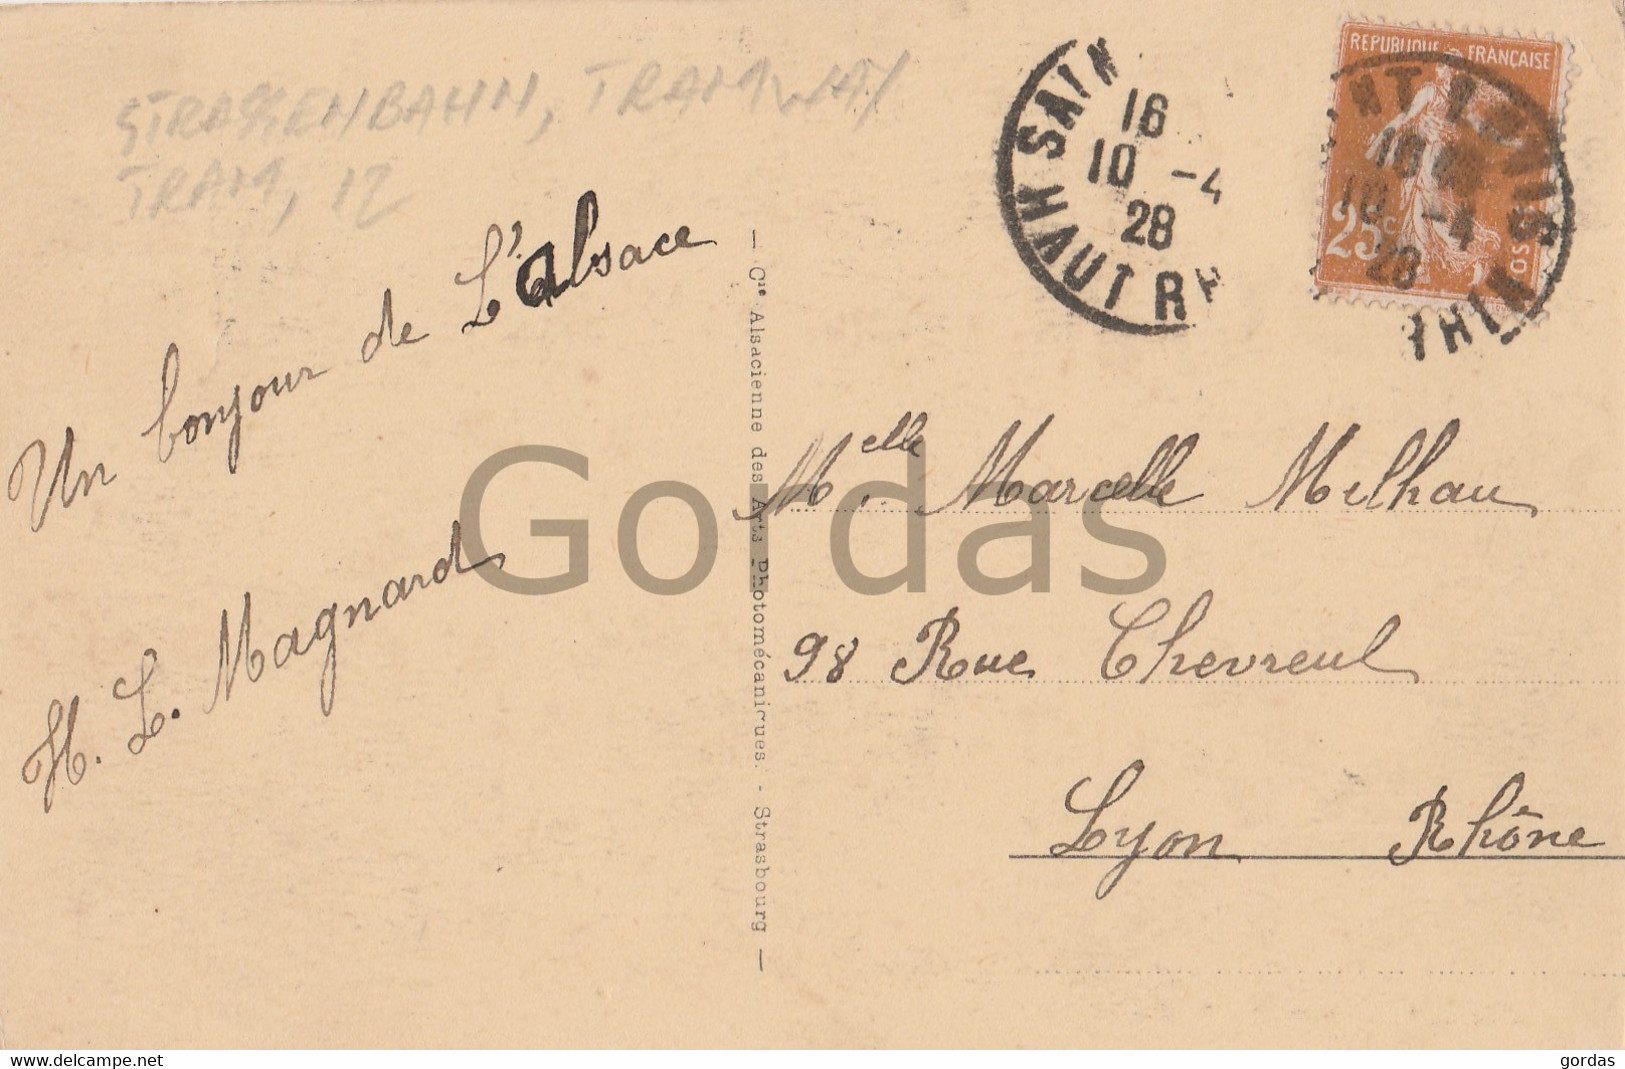 STRASSENBAHN, TRAMWAY
TRAM, 12
Un bonjour de L'Alsace
H. L. Magnard
— Cie Alsacienne des Arts Photomécaniques. - Strasbourg —
REPUBLIQUE FRANÇAISE
25c
SAINT LOUIS
HAUT RHIN
16
10 -4
28
Melle Marcelle Milhau
98 Rue Chevreul
Lyon Rhône
Gordas
www.delcampe.net
gordas